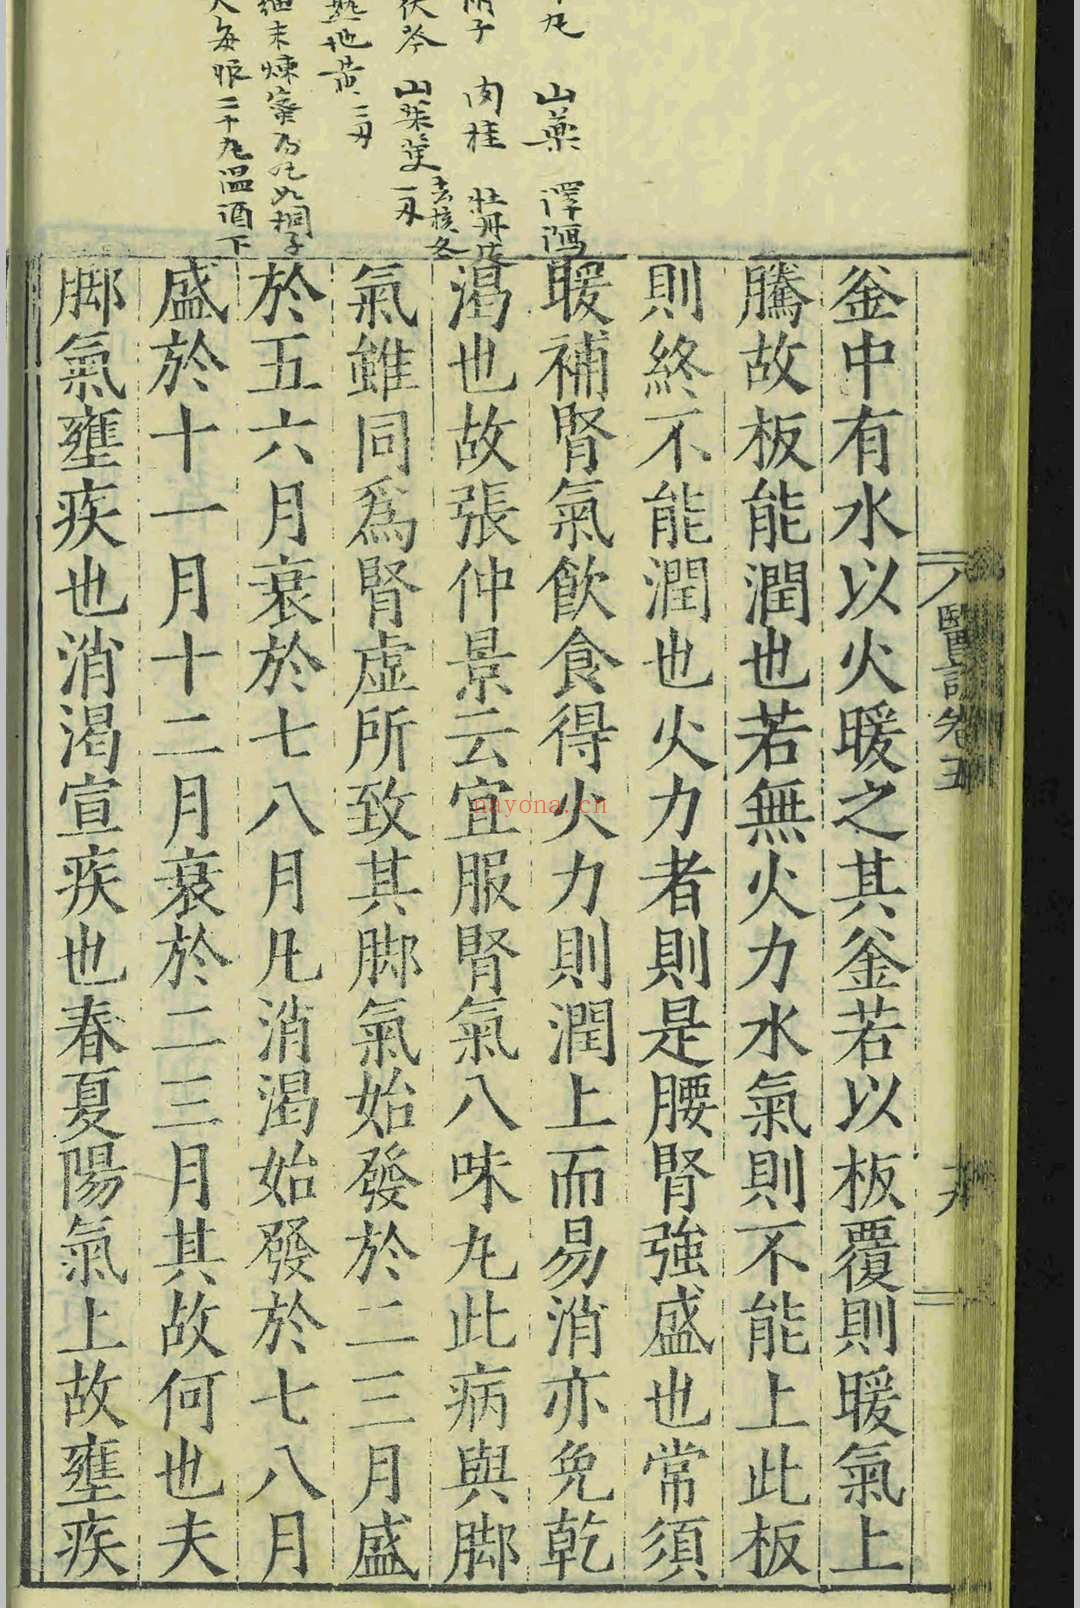 八味丸　山藥　澤瀉
附子　肉桂　牡丹皮
茯苓　山茱萸去核各一两
熟地黄二两
細末煉蜜為丸如桐子
大每服二十九温酒下
釜中有水以火暖之其釜若以板覆則暖氣上
騰故板能潤也若無火力水氣則不能上此板
則終不能潤也火力者則是腰腎強盛也常須
暖補腎氣飲食得火力則潤上而易消亦免乾
渴也故張仲景云宜服腎氣八味丸此病與脚
氣雖同爲腎虛所致其脚氣始發於二三月盛
於五六月衰於七八月凡消渴始發於七八月
盛於十一月十二月衰於二三月其故何也夫
脚氣壅疾也消渴宣疾也春夏陽氣上故壅疾
醫説卷五
十九
nayona.cn